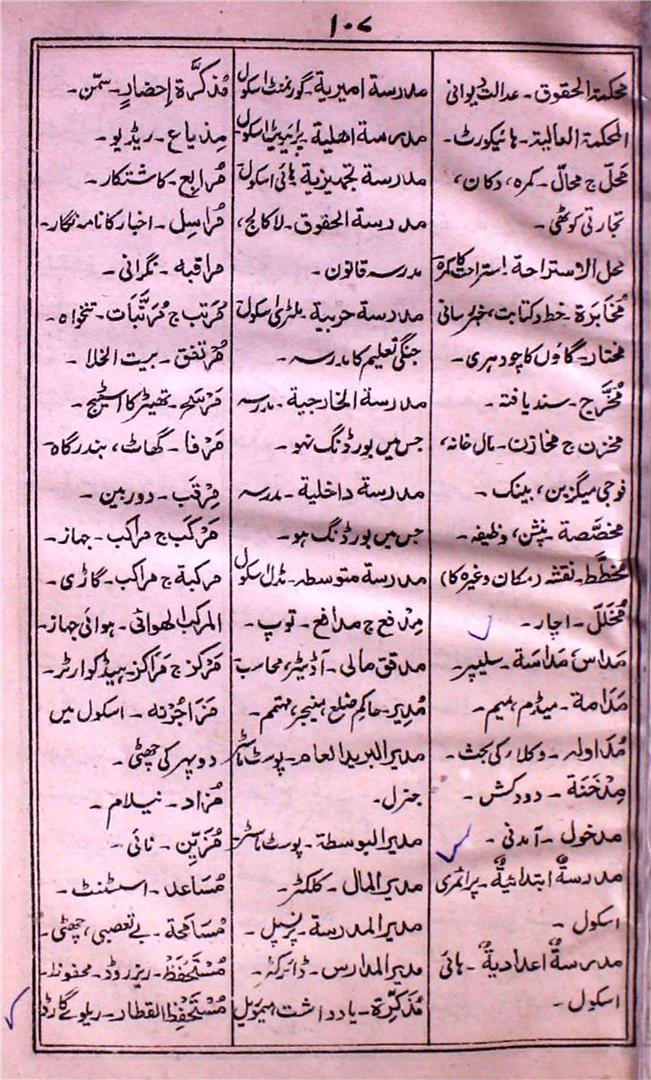 ۱۰۷
محکمة الحقوق۔ عدالت دیوانی
المحکمة العالیة۔ ہائیکورٹ۔
مَحَلّ ج محالّ۔ کمرہ، دکان،
تجارتی کوٹھی۔
محل الاستراحة۔ استراحت کا کمرہ
مُخَابَرَة۔ خط و کتابت، خبر رسانی
مختار۔ گاؤں کا چودہری۔
مُخَرَّج۔ سند یافتہ۔
مخزن ج مخازن۔ مال خانہ،
فوجی میگزین، بینک۔
مخصَّصة۔ پنشن، وظیفہ۔
مُخطَّط۔ نقشہ (مکان وغیرہ کا)
مُخَلَّل۔ اچار۔
مَدَاس، مَدَاسَة۔ سلیپر۔
مَدَامة۔ میڈم، میم۔
مُدَاولہ۔ وکلاء کی بحث۔
مِدْخَنَة۔ دودکش۔
مدخول۔ آمدنی۔
مدرسةٌ ابتدائیةٌ۔ پرائمری
اسکول۔
مدرسةٌ اعدادیةٌ۔ ہائی
اسکول۔
مدرسة امیریة۔ گورنمنٹ اسکول
مدرسة اھلیة۔ پرائیویٹ اسکول
مدرسة تجھیزیة۔ ہائی اسکول
مدرسة الحقوق۔ لا کالج،
مدرسہ قانون۔
مدرسة حربیة۔ ملٹری اسکول
جنگی تعلیم کا مدرسہ۔
مدرسة الخارجیة۔ مدرسہ
جس میں بورڈنگ نہو۔
مدرسة داخلیة۔ مدرسہ
جس میں بورڈنگ ہو۔
مدرسة متوسطہ۔ مڈل سکول
مِدْفع ج مدافع۔ توپ۔
مدقق مالی۔ آڈیٹر، محاسب
مُدِیر۔ حاکم ضلع، منیجر، مہتمم۔
مدیر البرید العام۔ پوسٹ ماسٹر
جنرل۔
مدیر البوسطة۔ پوسٹ ماسٹر۔
مدیر المال۔ کلکٹر۔
مدیر المدرسة۔ پرنسپل۔
مدیر المدارس۔ ڈائرکٹر۔
مُذَکِّرَة۔ یادداشت، میموریل
مُذکَّرَة إحضارٍ۔ سمّن۔
مِذیاع۔ ریڈیو۔
مُرابع۔ کاشتکار۔
مُراسِل۔ اخبار کا نامہ نگار۔
مراقبہ۔ نگرانی۔
مُرَتب ج مُرَتَّبَات۔ تنخواہ۔
مُرْتفق۔ بیت الخلا۔
مَرْسَح۔ تھیٹر کا اسٹیج۔
مَرْفا۔ گھاٹ، بندرگاہ
مِرْقَب۔ دوربین۔
مَرْکَب ج مراکب۔ جہاز۔
مرکبة ج مراکب۔ گاڑی۔
المرکب الھوائی۔ ہوائی جہاز۔
مَرْکز ج مَرَاکز۔ ہیڈ کوارٹر۔
اسکول میں
دوپہر کی چھٹی۔
مُزاد۔ نیلام۔
مُزَیِّن۔ نائی۔
مُسَاعد۔ اسسٹنٹ۔
مُسَامَحة۔ بے تعصبی، چھٹی۔
مُسْتَحْفَظْ۔ ریزروڈ۔ محفوظ۔
مُسْتَحْفِظ القطار۔ ریلوے گارڈ